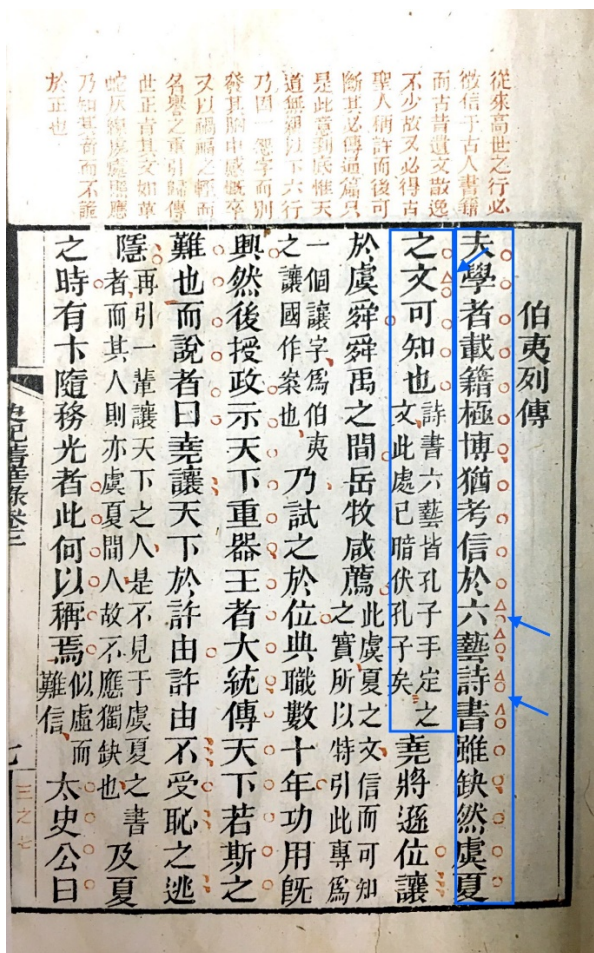 從來高世之行必
徵信于古人書籍
而古昔遺文散逸
不少故又必得古
聖人稱許而後可
斷其必傳通篇只
是此意到底惟天
道無親以下六行
乃因一怨字而別
發其胸中感慨卒
又以禍福之輕而
名譽之重引歸傳
世正旨其文如草
蛇灰線處處照應
乃知其奇而不詭
於正也
伯夷列傳
夫學者載籍極博猶考信於六藝詩書雖缺然虞夏
之文可知也詩書六藝皆孔子手定之文此處已暗伏孔子矣堯將遜位讓
於虞舜舜禹之間岳牧咸薦此虞夏之文信而可知之實所以特引此專爲
一個讓字爲伯夷之讓國作案也乃試之於位典職數十年功用既
興然後授政示天下重器王者大統傳天下若斯之
難也而說者曰堯讓天下於許由許由不受恥之逃
隱再引一輩讓天下之人是不見于虞夏之書者而其人則亦虞夏間人故不應獨缺也及夏
之時有卞隨務光者此何以稱焉似虛而難信太史公曰
史記菁華錄卷三
七
三之七